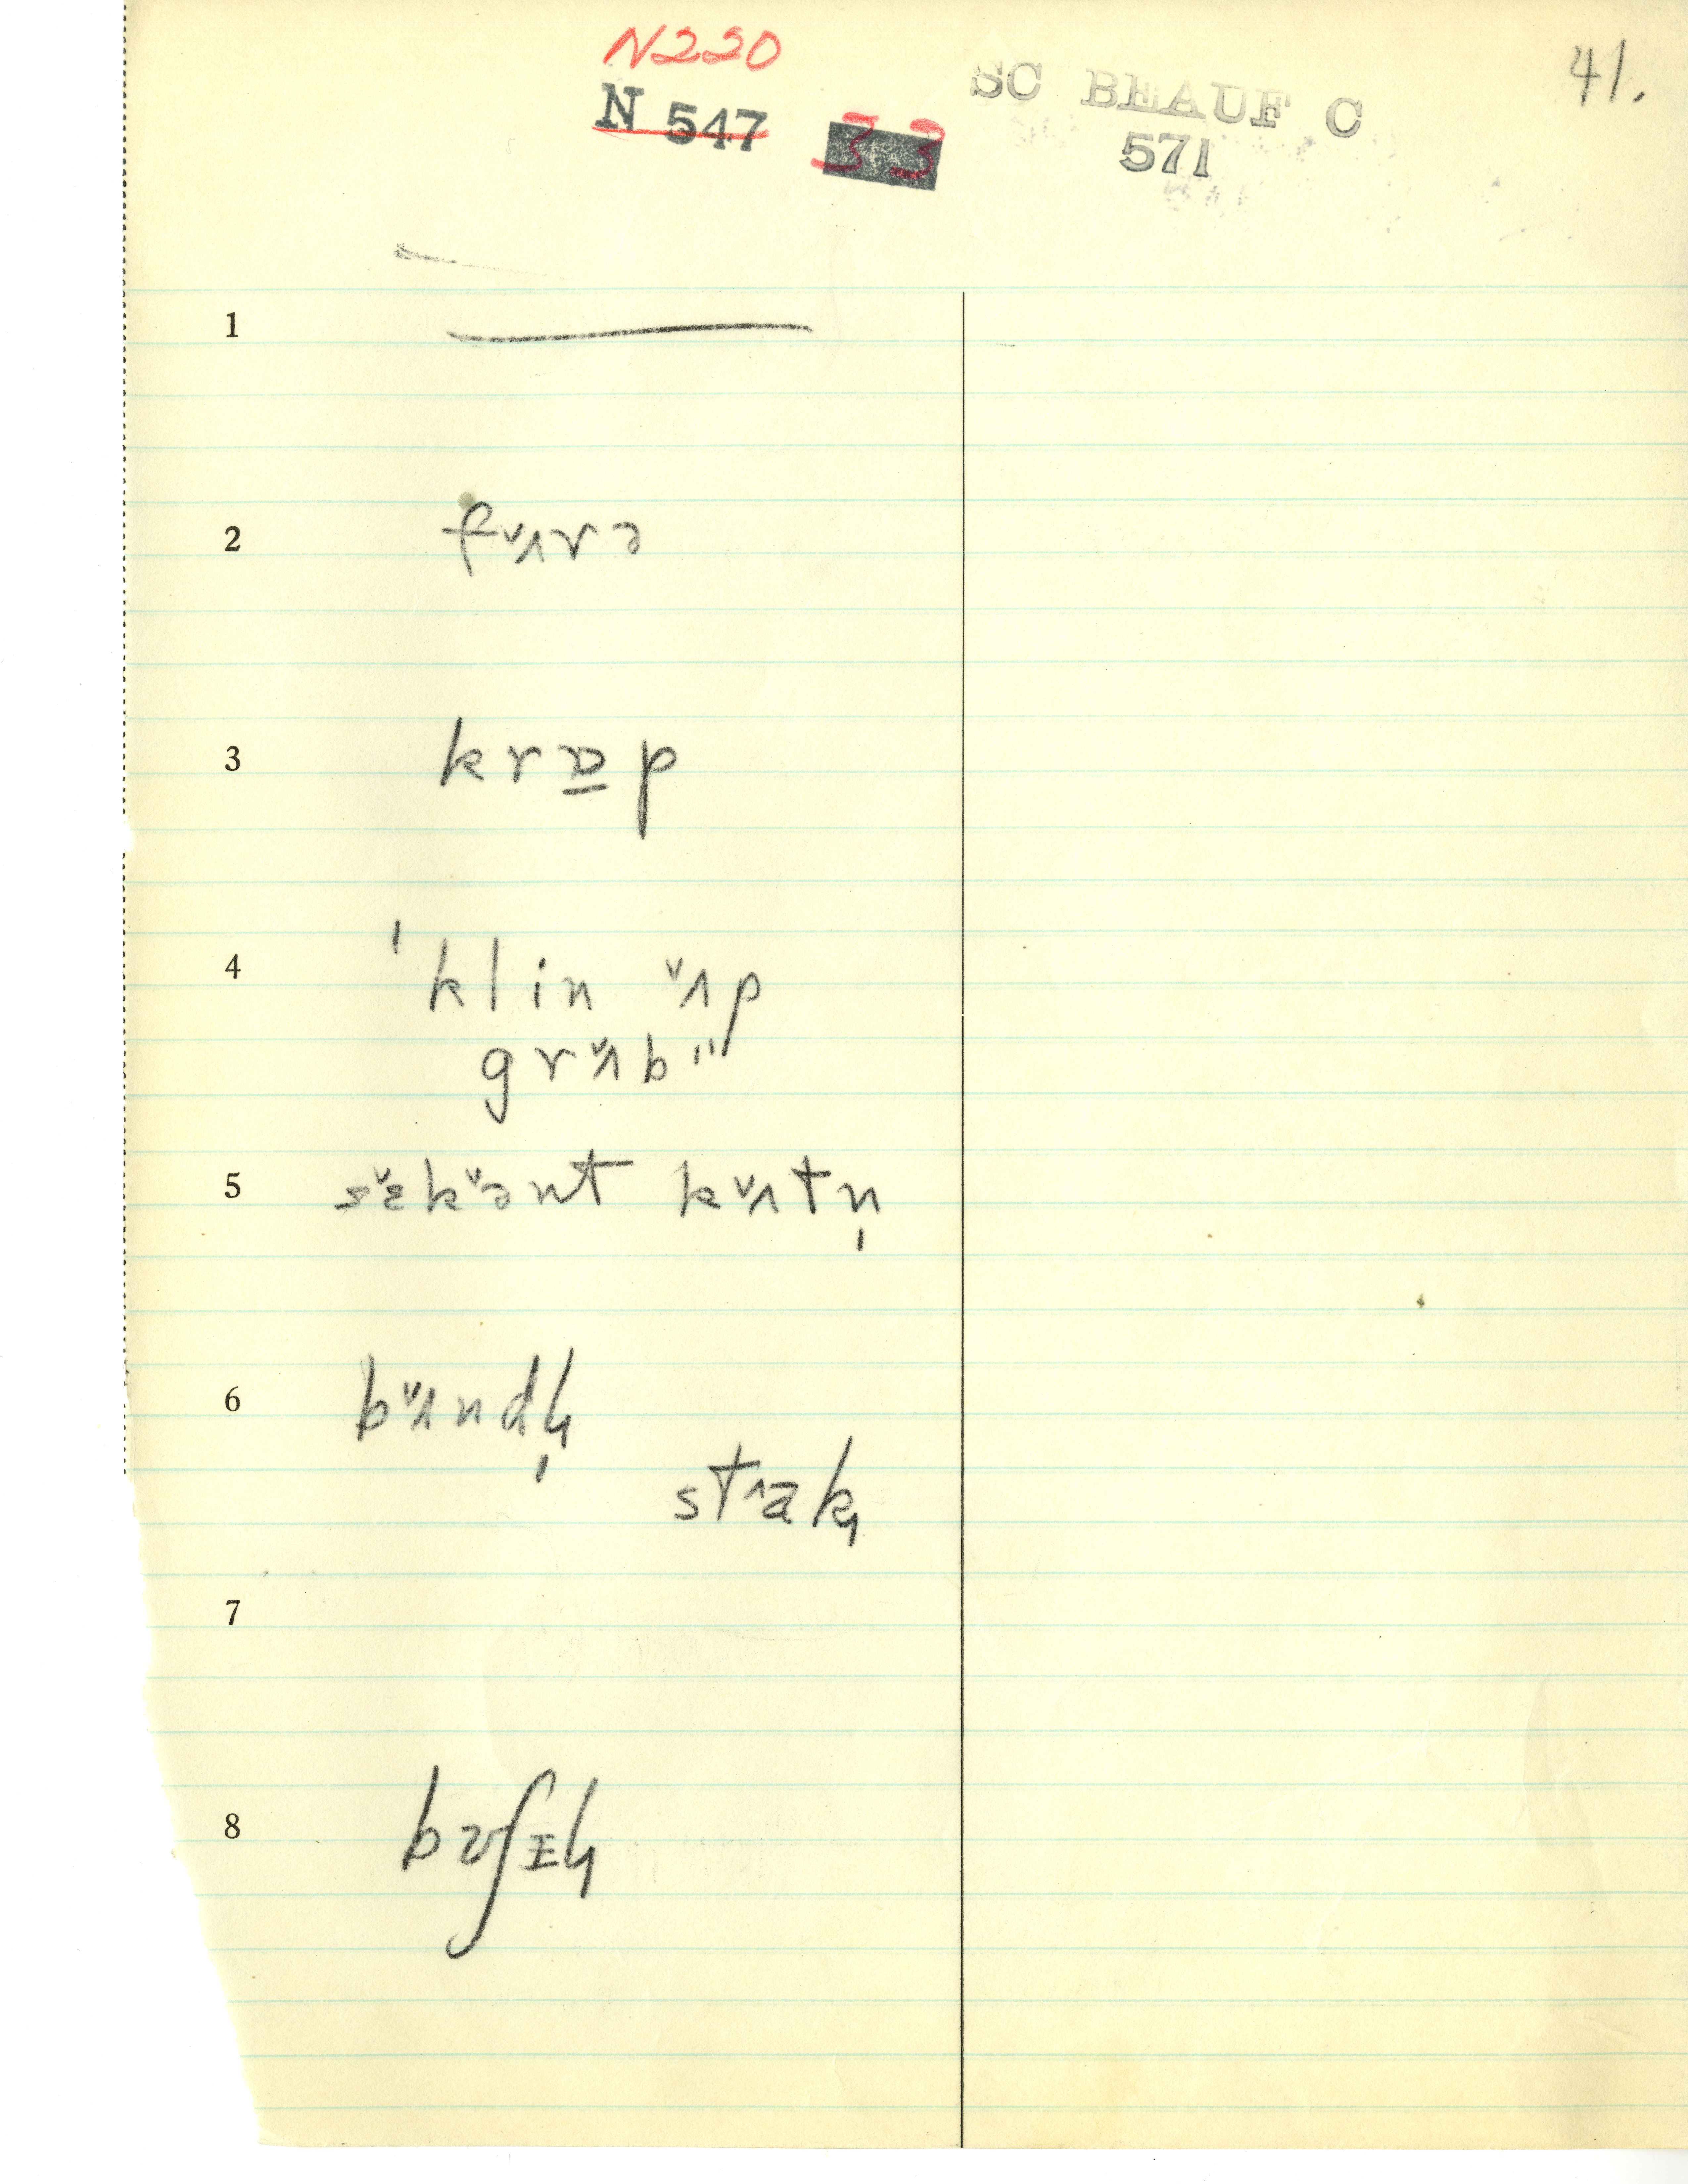 N220
N 547 33 SC BEAUF C 41.
571
1
2 fʌ̌rə
3 krɒ̱p
4 ˈklin ʌ̌p
grʌ̌b"
5 sɛ̌kə̌nt kʌ̌tn̩
6 bʌ̌ndl̩
stæ̂k
7
8 bʊʃɪl